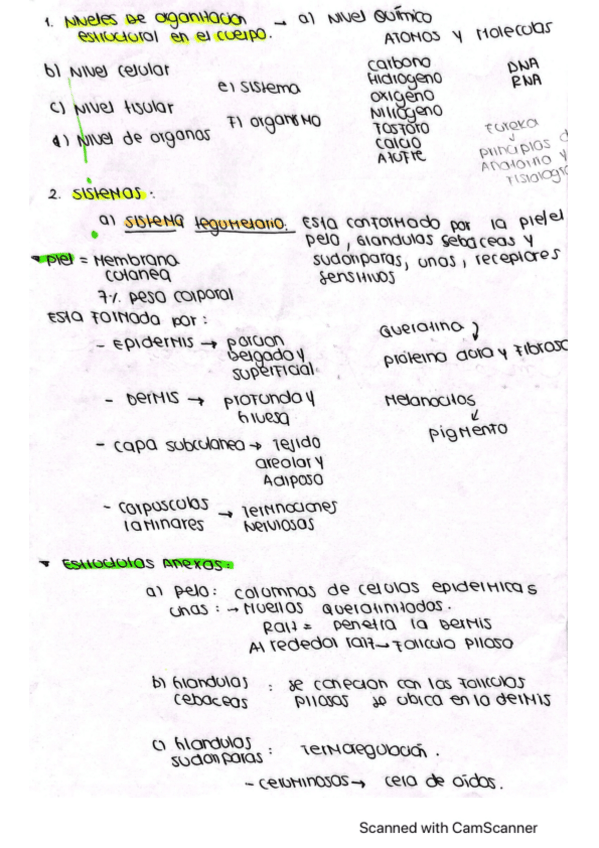 1. Niveles de organitacion → a) Nivel Químico
estructural en el cuerpo.
Atomos y Moleculas
b) Nivel celular
c) Nivel tisular
d) Nivel de organos
e) sistema
f) organismo
carbono
Hidrogeno
oxigeno
Nitrogeno
Fosforo
calcio
Atufre
DNA
RNA
Eureka
↓
principios d
Anatomia y
Fisiologia
2. Sistemas :
a) sistema tegumetario. Esta conformado por la piel, el
pelo, Glandulas sebaceas y
sudoriparas, unas, receptores
sensitivos
Piel = Membrana
cutanea
7% peso corporal
Esta formada por :
- Epidermis → porcion
delgado y
superficial
- Dermis → profundo y
gruesa
- capa subcutanea → Tejido
areolar y
Adiposo
- corpusculos
laminares → Terminaciones
Nerviosas
Queratina ↓
proteina dura y fibrosa
Melanocitos
↓
pigmento
Estructuras Anexas :
a) pelo : columnas de celulas epidermicas
unas : → Muertas queratinitados.
Rait = penetra la Dermis
Al rededor rait → Foliculo piloso
b) Glandulas
cebaceas : se conecion con los foliculos
pilosos se ubica en la dermis
c) Glandulas
sudoriparas : Termoregulación.
- ceruminosas → cera de oidos.
Scanned with CamScanner